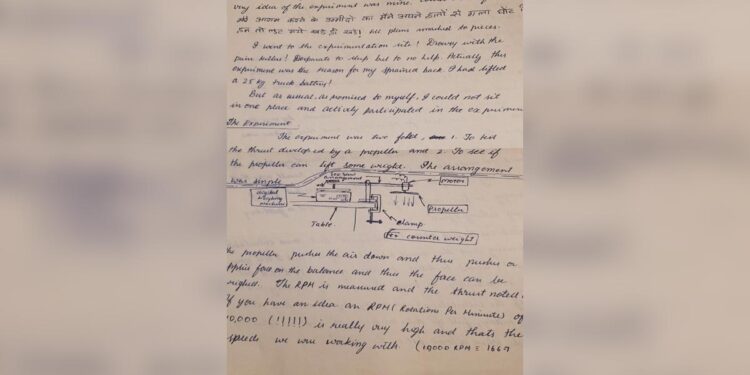 very idea of the experiment was mine.
I went to the experimentation site! Drowsy with the
pain killer! Desparate to sleep but to no help. Actually this
experiment was the reason for my sprained back. I had lifted
a 25 kg truck battery!
But as usual, as promised to myself, I could not sit
in one place and actively participated in the experiment
The Experiment
The experiment was two fold, 1. To test
the thrust developed by a propeller and 2. To see if
the propeller can lift some weight. The arrangement
was simple
see saw
arrangement
motor
digital
weighing
machine
propeller
Table
clamp
counter weight
the propeller pushes the air down and thus pushes or
applies force on the balance and thus the force can be
weighed. The RPM is measured and the thrust noted.
If you have an idea an RPM (Rotations Per Minute) of
10,000 (!!!!!) is really very high and thats the
speeds we were working with. (10000 RPM = 166.7